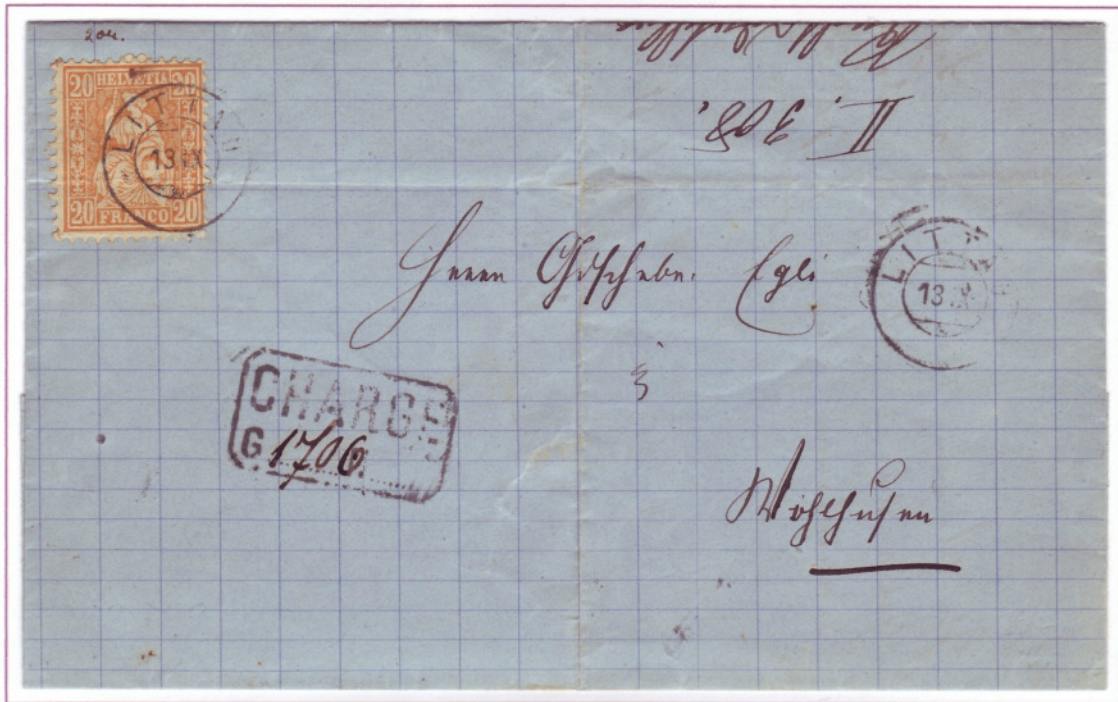 204.
20 HELVETIA 20
20 FRANCO 20
LITTAU
13 IX
II. 308.
Herrn Gdschbr. Egli
LITT
13 IX
CHARGÉ
G 1706
Wohlhusen